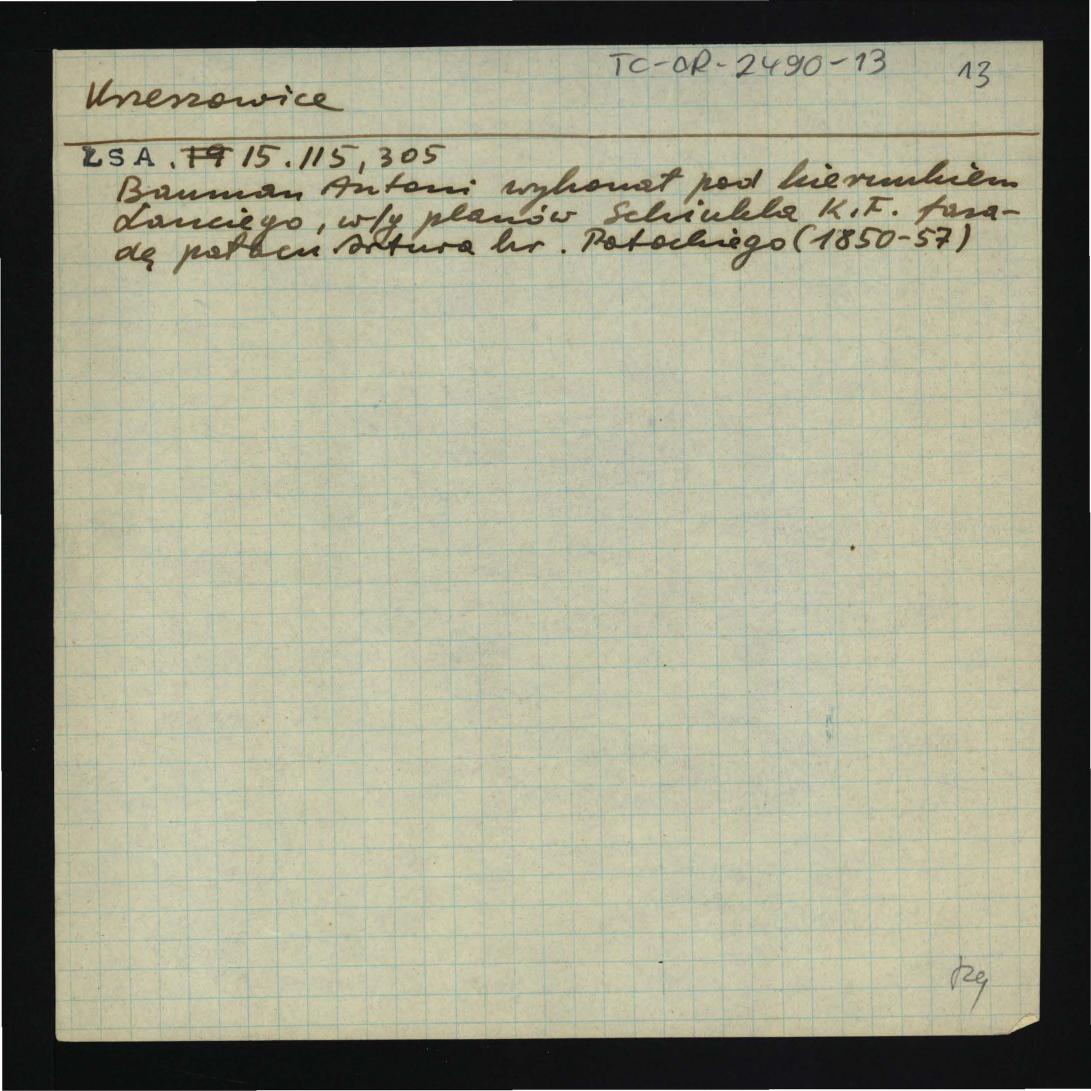 TC-OR-2490-13 13
Krzeszowice
ŁSA. 19 15.115,305
Bauman Antoni wykonał pod kierunkiem
Lanciego, w/g planów Schinkla K.F. fasa-
dę pałacu Artura hr. Potockiego (1850-57)